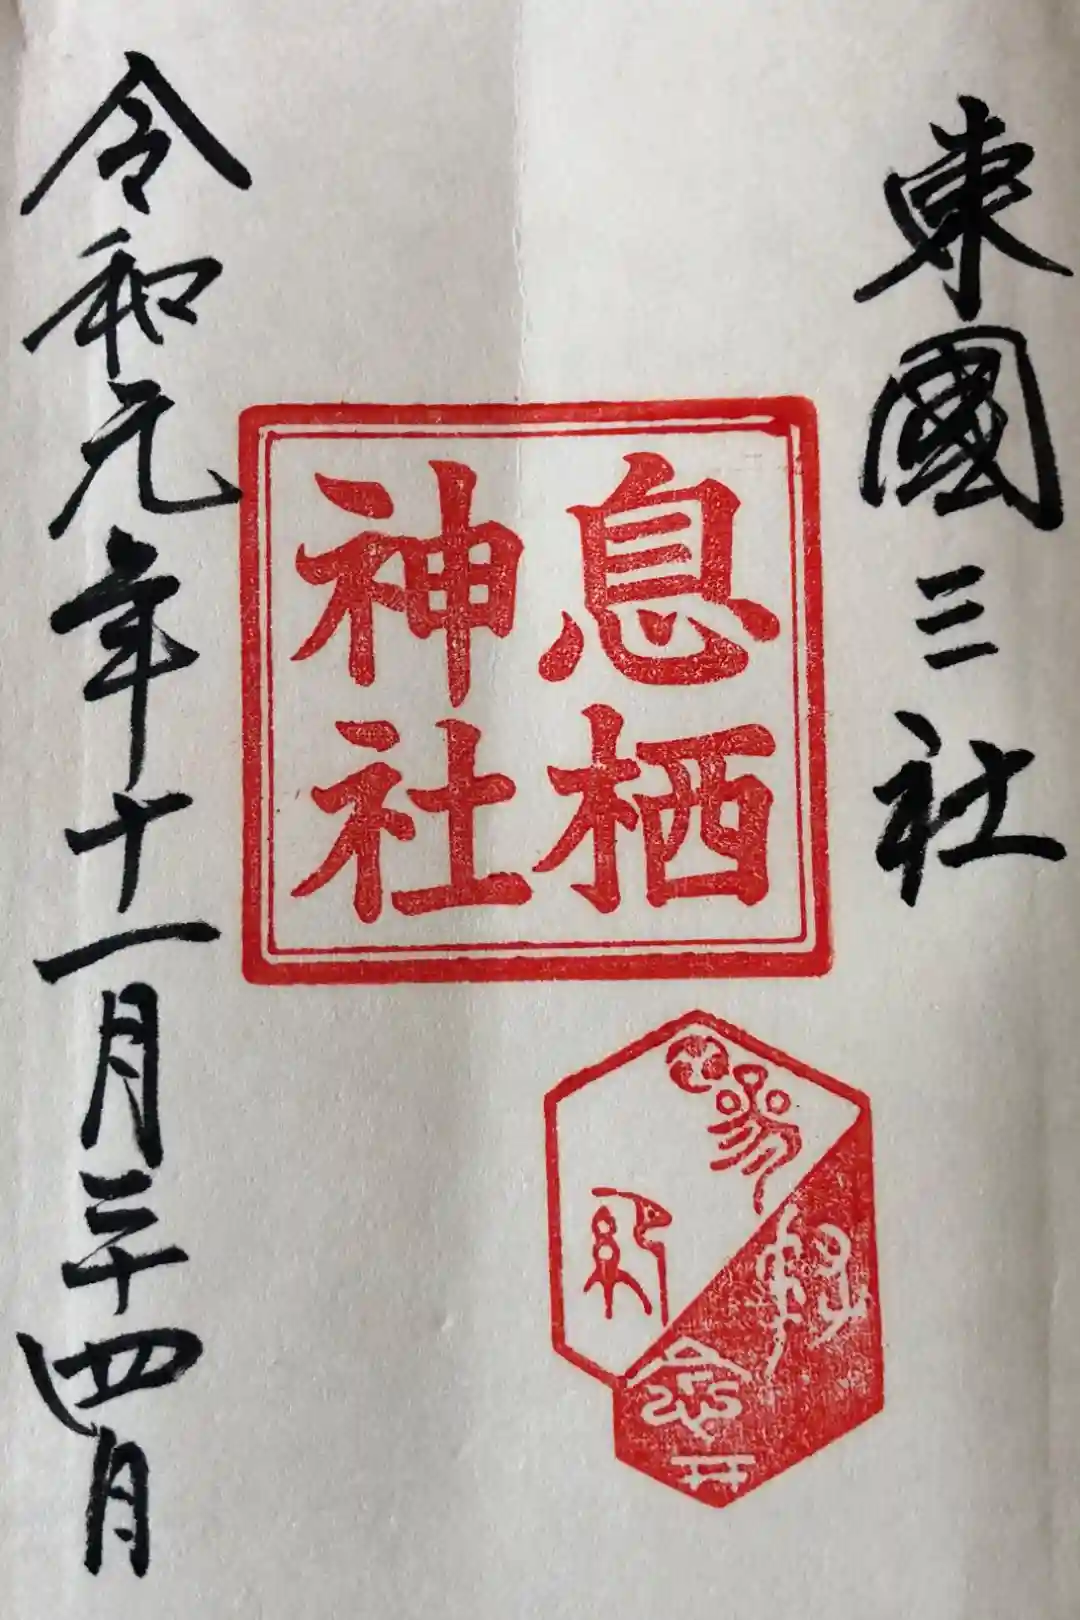 東國三社
息栖
神社
令和元年十一月二十四月